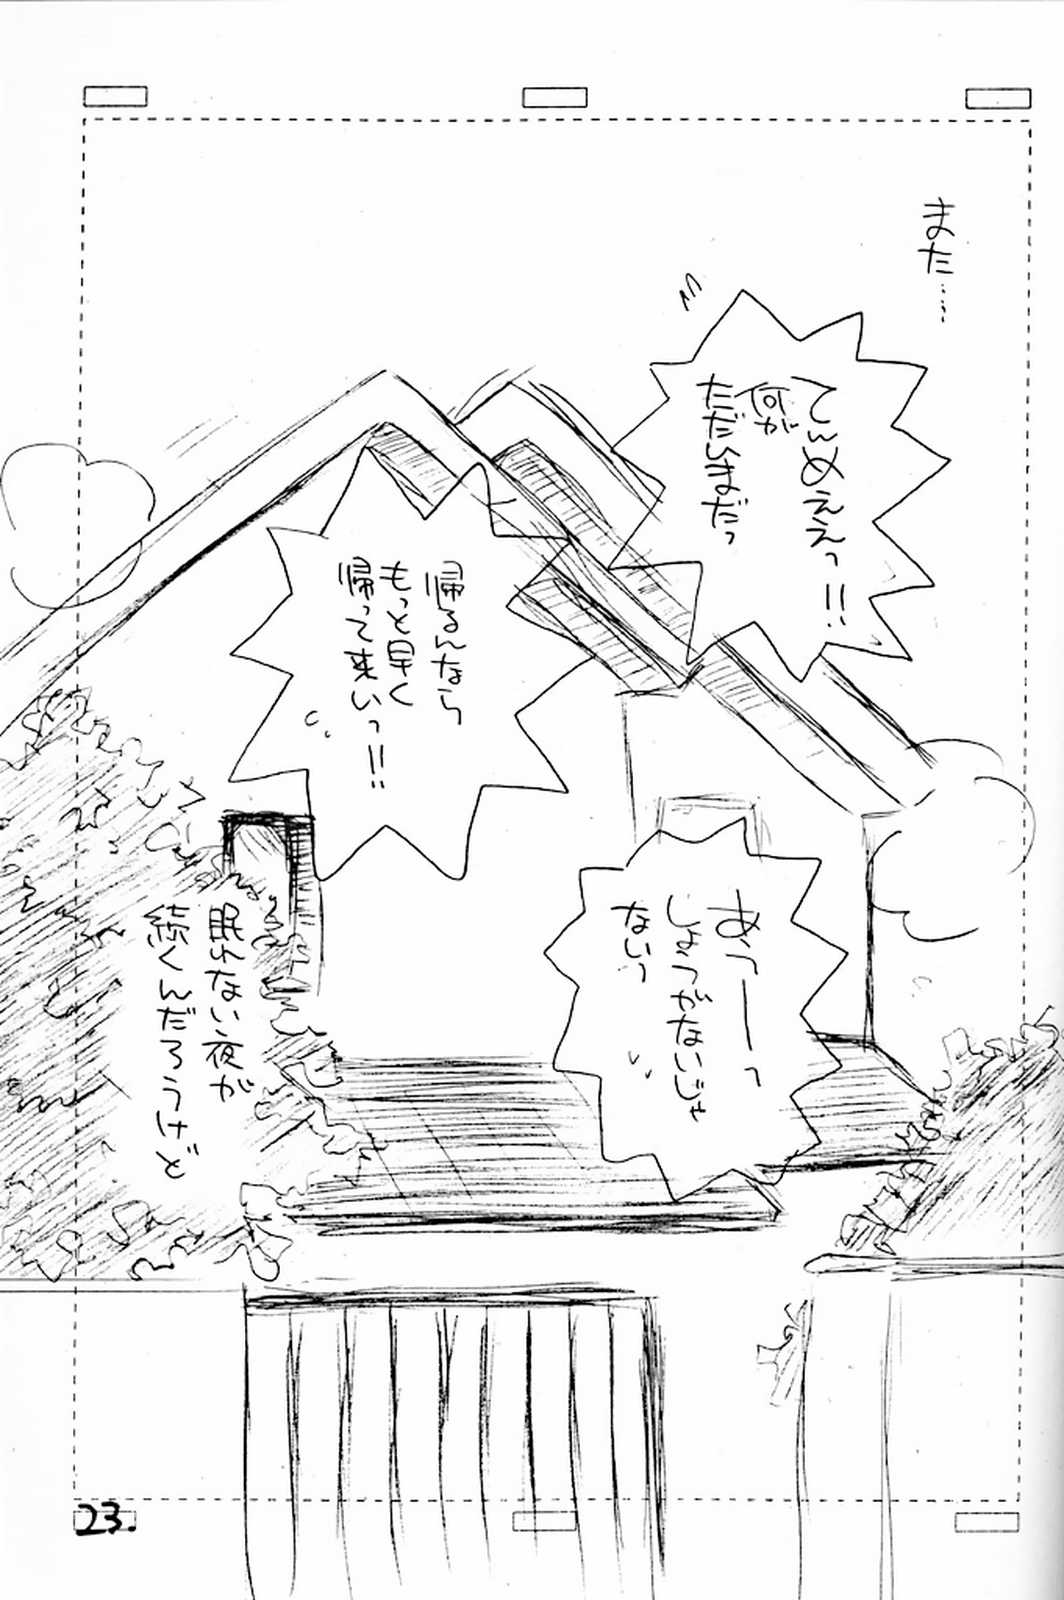 また……
てんめええっ!!
何が
ただいまだっ
帰るんなら
もっと早く
帰って来いっ!!
あっーーっ
しょうがないじゃ
ないっ
眠れない夜が
続くんだろうけど
23.